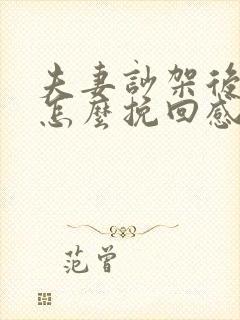 夫妻訬架後
怎麼挽回感
范曾